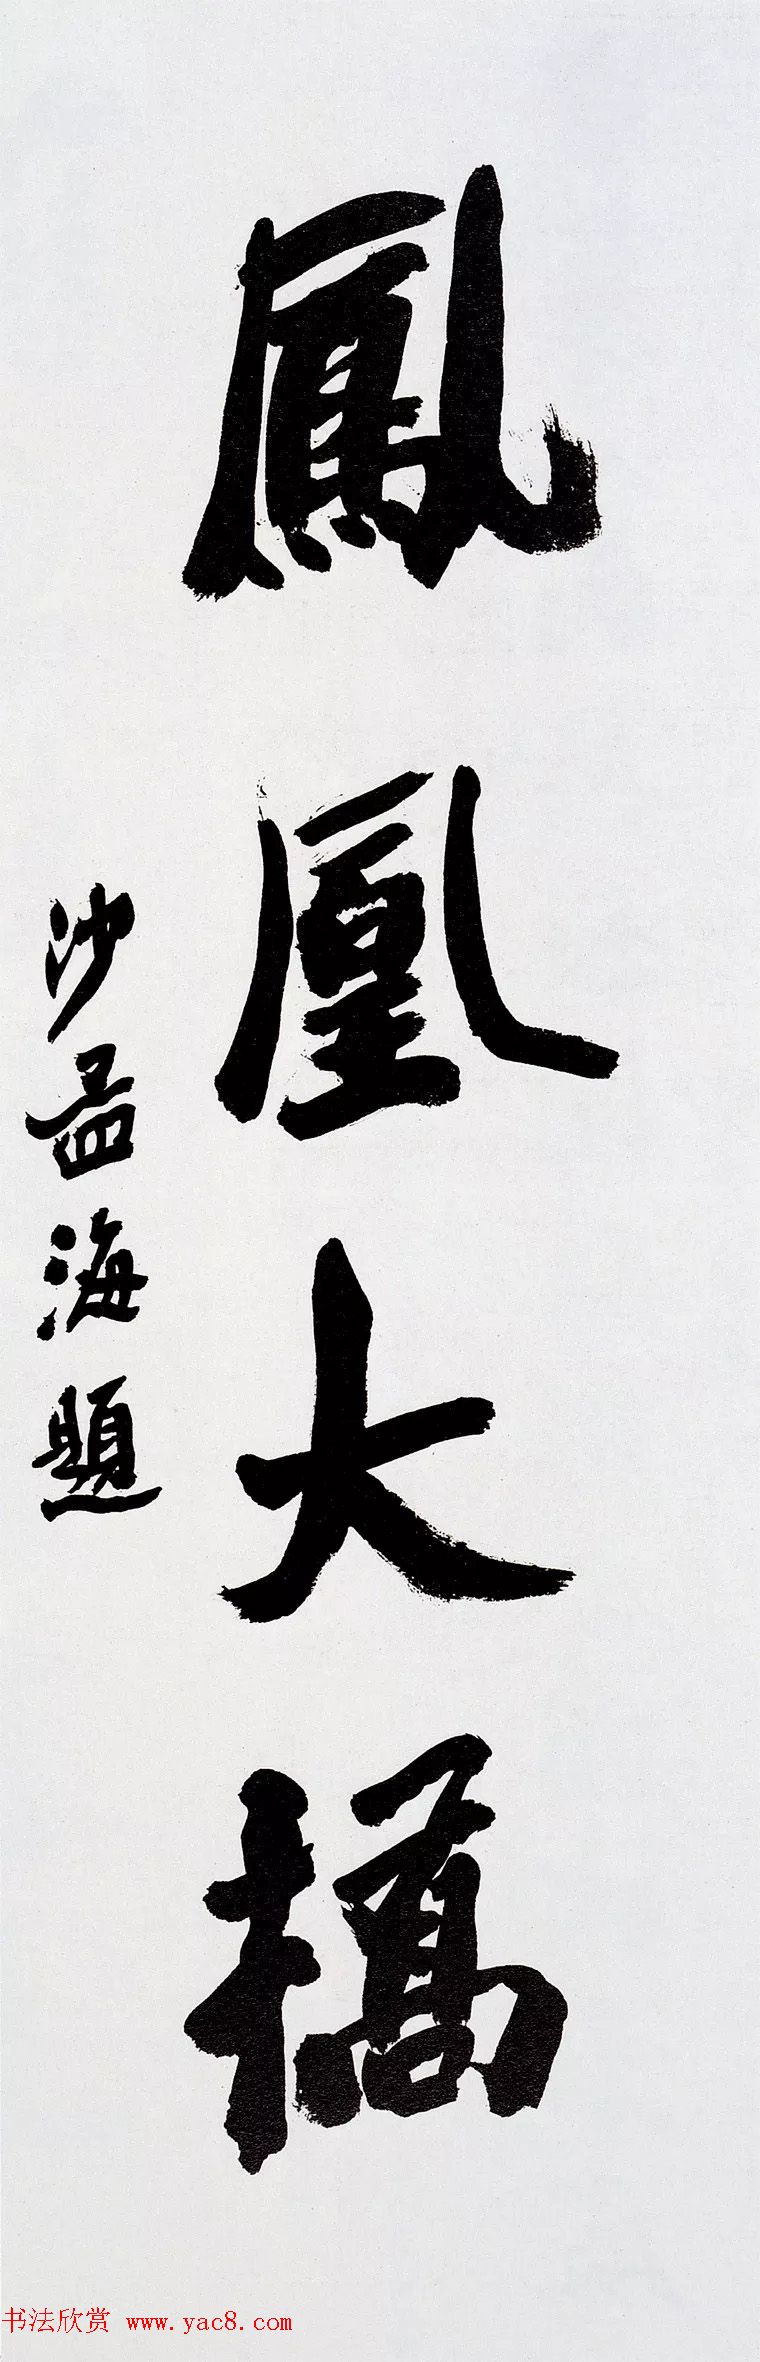 鳳凰大橋
沙孟海題
书法欣赏 www.yac8.com